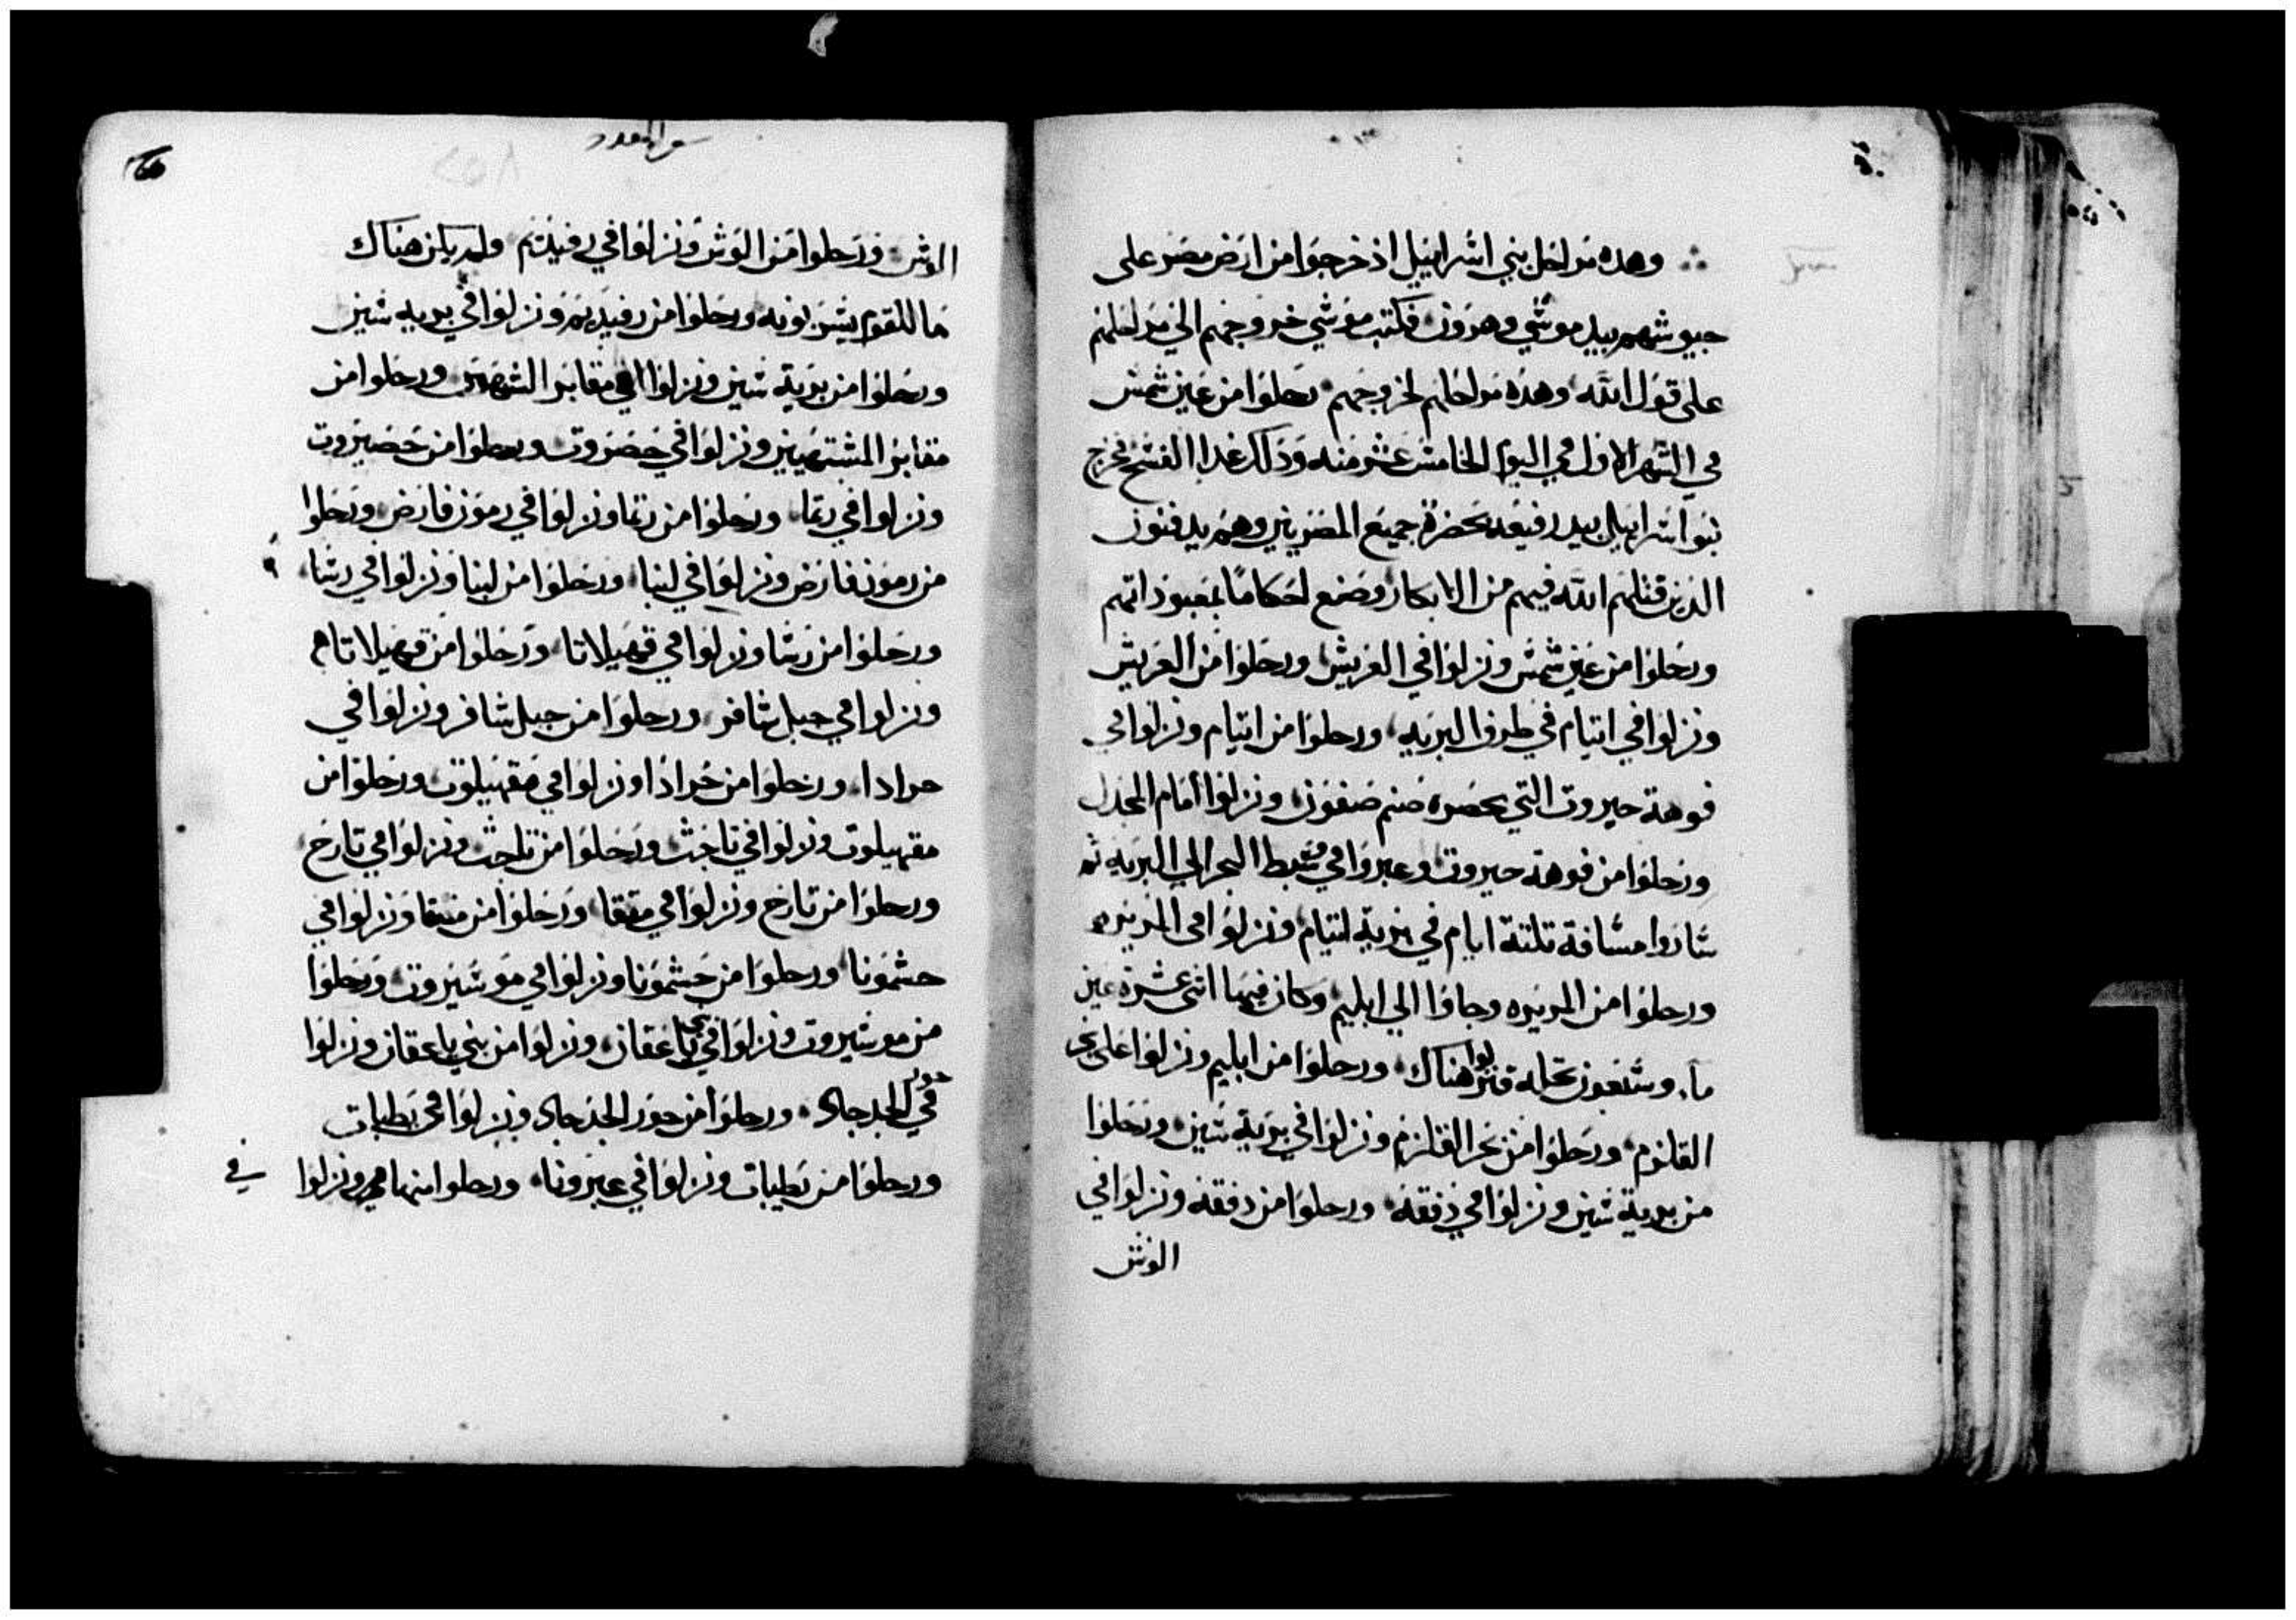 وهده مراحل بني اسراييل اذ خرجوا من ارض مصر على
جيوشهم بيد موسي وهرون فكتب موسي خروجهم الي مراحلهم
على قول الله وهده مراحلهم لخروجهم رحلوا من عين شمس
في الشهر الاول في اليوم الخامس عشر منه وذلك غدا الفسح فخرج
بنو اسراييل بيد رفيعه بحضرة جميع المصريين وهم يدفنون
الذين قتلهم الله فيهم من الابكار وصنع احكامًا بمعبوداتهم
ورحلوا من عين شمس ونزلوا في العريش ورحلوا من العريش
ونزلوا في اتيام في طرف البريه ورحلوا من اتيام ونزلوا في
فوهة حيروت التي بحضره صنم صفون ونزلوا امام المجدل
ورحلوا من فوهة حيروت وعبروا في وسط البحر الي البريه ثم
ساروا مسافة تلتة ايام في برية اتيام ونزلوا في المريره
ورحلوا من المريره وجاوا الي ايليم وكان فيها اثنى عشرة عين
ما وسبعون نخله فنزلوا هناك ورحلوا من ايليم ونزلوا على بحر
القلزم ورحلوا من بحر القلزم ونزلوا في برية سين ورحلوا
من برية سين ونزلوا في دفقه ورحلوا من دفقه ونزلوا في
الوش
سفر العدد
الوش ورحلوا من الوش ونزلوا في رفيديم ولم يكن هناك
ما للقوم يشربونه ورحلوا من رفيديم ونزلوا في بريه سين
ورحلوا من برية سين ونزلوا في مقابر الشهيين ورحلوا من
مقابر المشتهيين ونزلوا في حضروت ورحلوا من حضيروت
ونزلوا في رتما ورحلوا من رتما ونزلوا في رمون فارض ورحلوا
من رمون فارض ونزلوا في لبنا ورحلوا من لبنا ونزلوا في رسا
ورحلوا من رسا ونزلوا في قهيلاتا ورحلوا من قهيلاتا
ونزلوا في جبل شافر ورحلوا من جبل شافر ونزلوا في
حرادا ورحلوا من حرادا ونزلوا في مقهيلوت ورحلوا من
مقهيلوت ونزلوا في تاحث ورحلوا من تاحث ونزلوا في تارح
ورحلوا من تارح ونزلوا في متقا ورحلوا من متقا ونزلوا في
حشمونا ورحلوا من حشمونا ونزلوا في موسيروت ورحلوا
من موسيروت ونزلوا في بني ياعقان ونزلوا من بني ياعقان ونزلوا
في حور الجدجاد ورحلوا من حور الجدجاد ونزلوا في يطبات
ورحلوا من يطبات ونزلوا في عبرونا ورحلوا منها ونزلوا
في